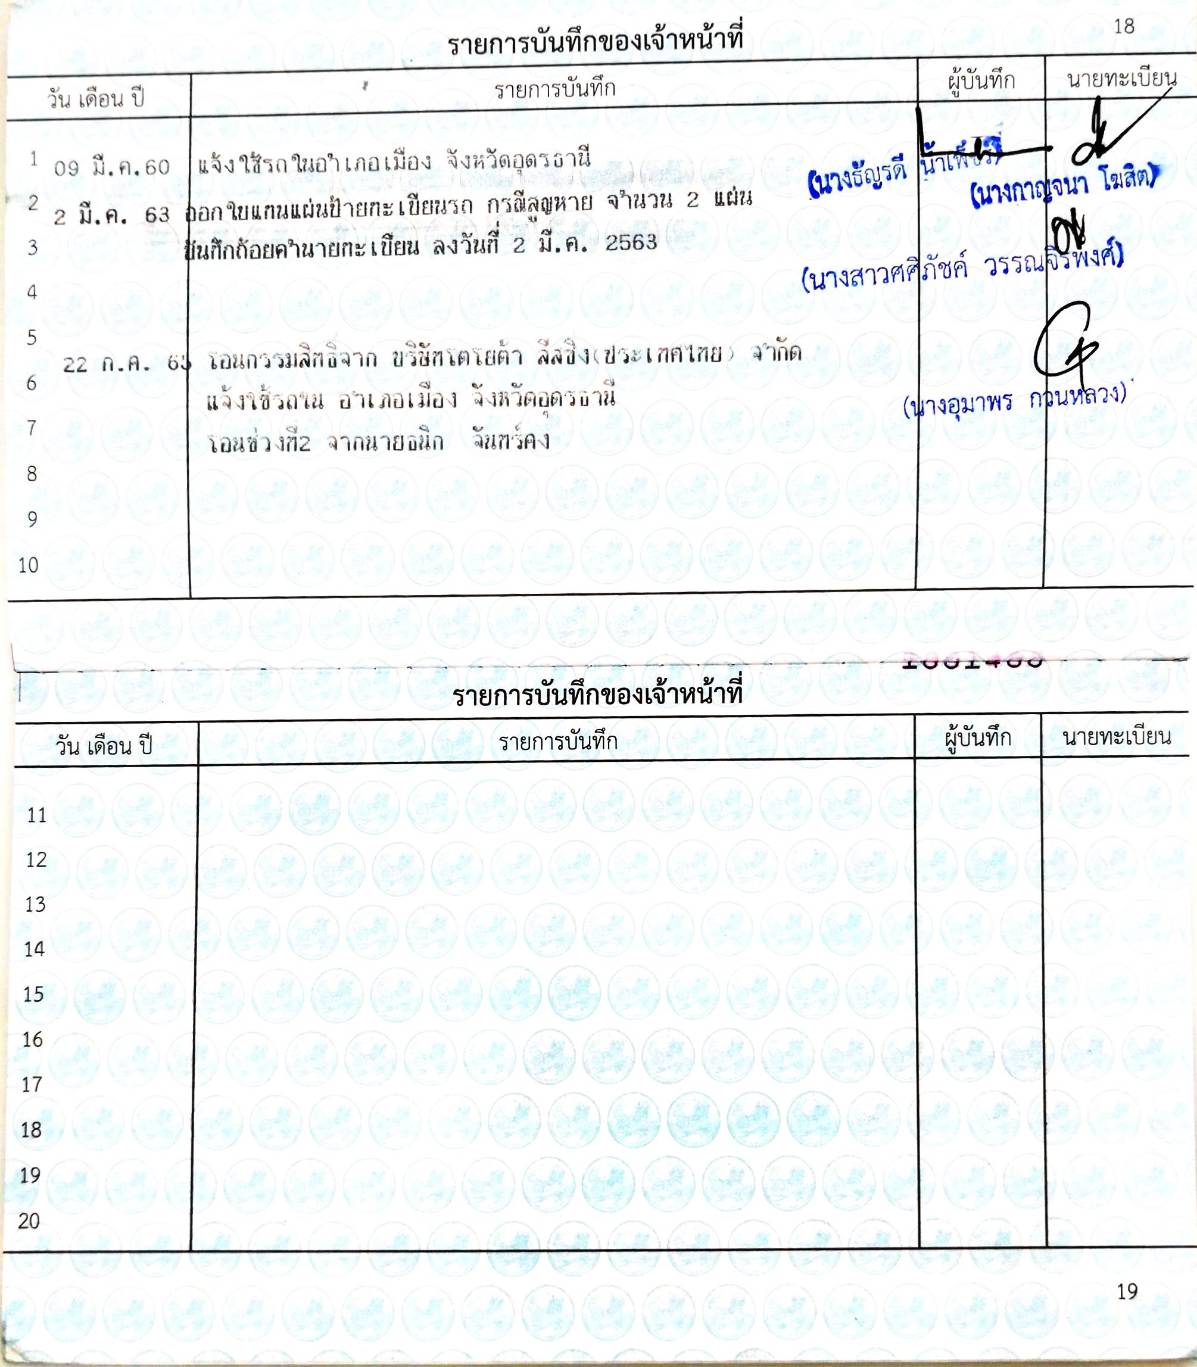 18
รายการบันทึกของเจ้าหน้าที่
วัน เดือน ปี รายการบันทึก ผู้บันทึก นายทะเบียน
1 09 มี.ค.60 แจ้งใช้รถในอำเภอเมือง จังหวัดอุดรธานี (นางธัญรดี (นางกาญจนา โฆสิต)
2 2 มี.ค. 63 ออกใบแทนแผ่นป้ายทะเบียนรถ กรณีสูญหาย จำนวน 2 แผ่น
3 บันทึกถ้อยคำนายทะเบียน ลงวันที่ 2 มี.ค. 2563 (นางสาวศศิภัชค์ วรรณจิรพงศ์)
4
5 22 ก.ค. 65 โอนกรรมสิทธิ์จาก บริษัทโตโยต้า ลีสซิ่ง(ประเทศไทย) จำกัด
6 แจ้งใช้รถใน อำเภอเมือง จังหวัดอุดรธานี (นางอุมาพร กวนหลวง)
7 โอนช่วงที่2 จากนายธนิก จันทร์คง
8
9
10
รายการบันทึกของเจ้าหน้าที่
วัน เดือน ปี รายการบันทึก ผู้บันทึก นายทะเบียน
11
12
13
14
15
16
17
18
19
20
19